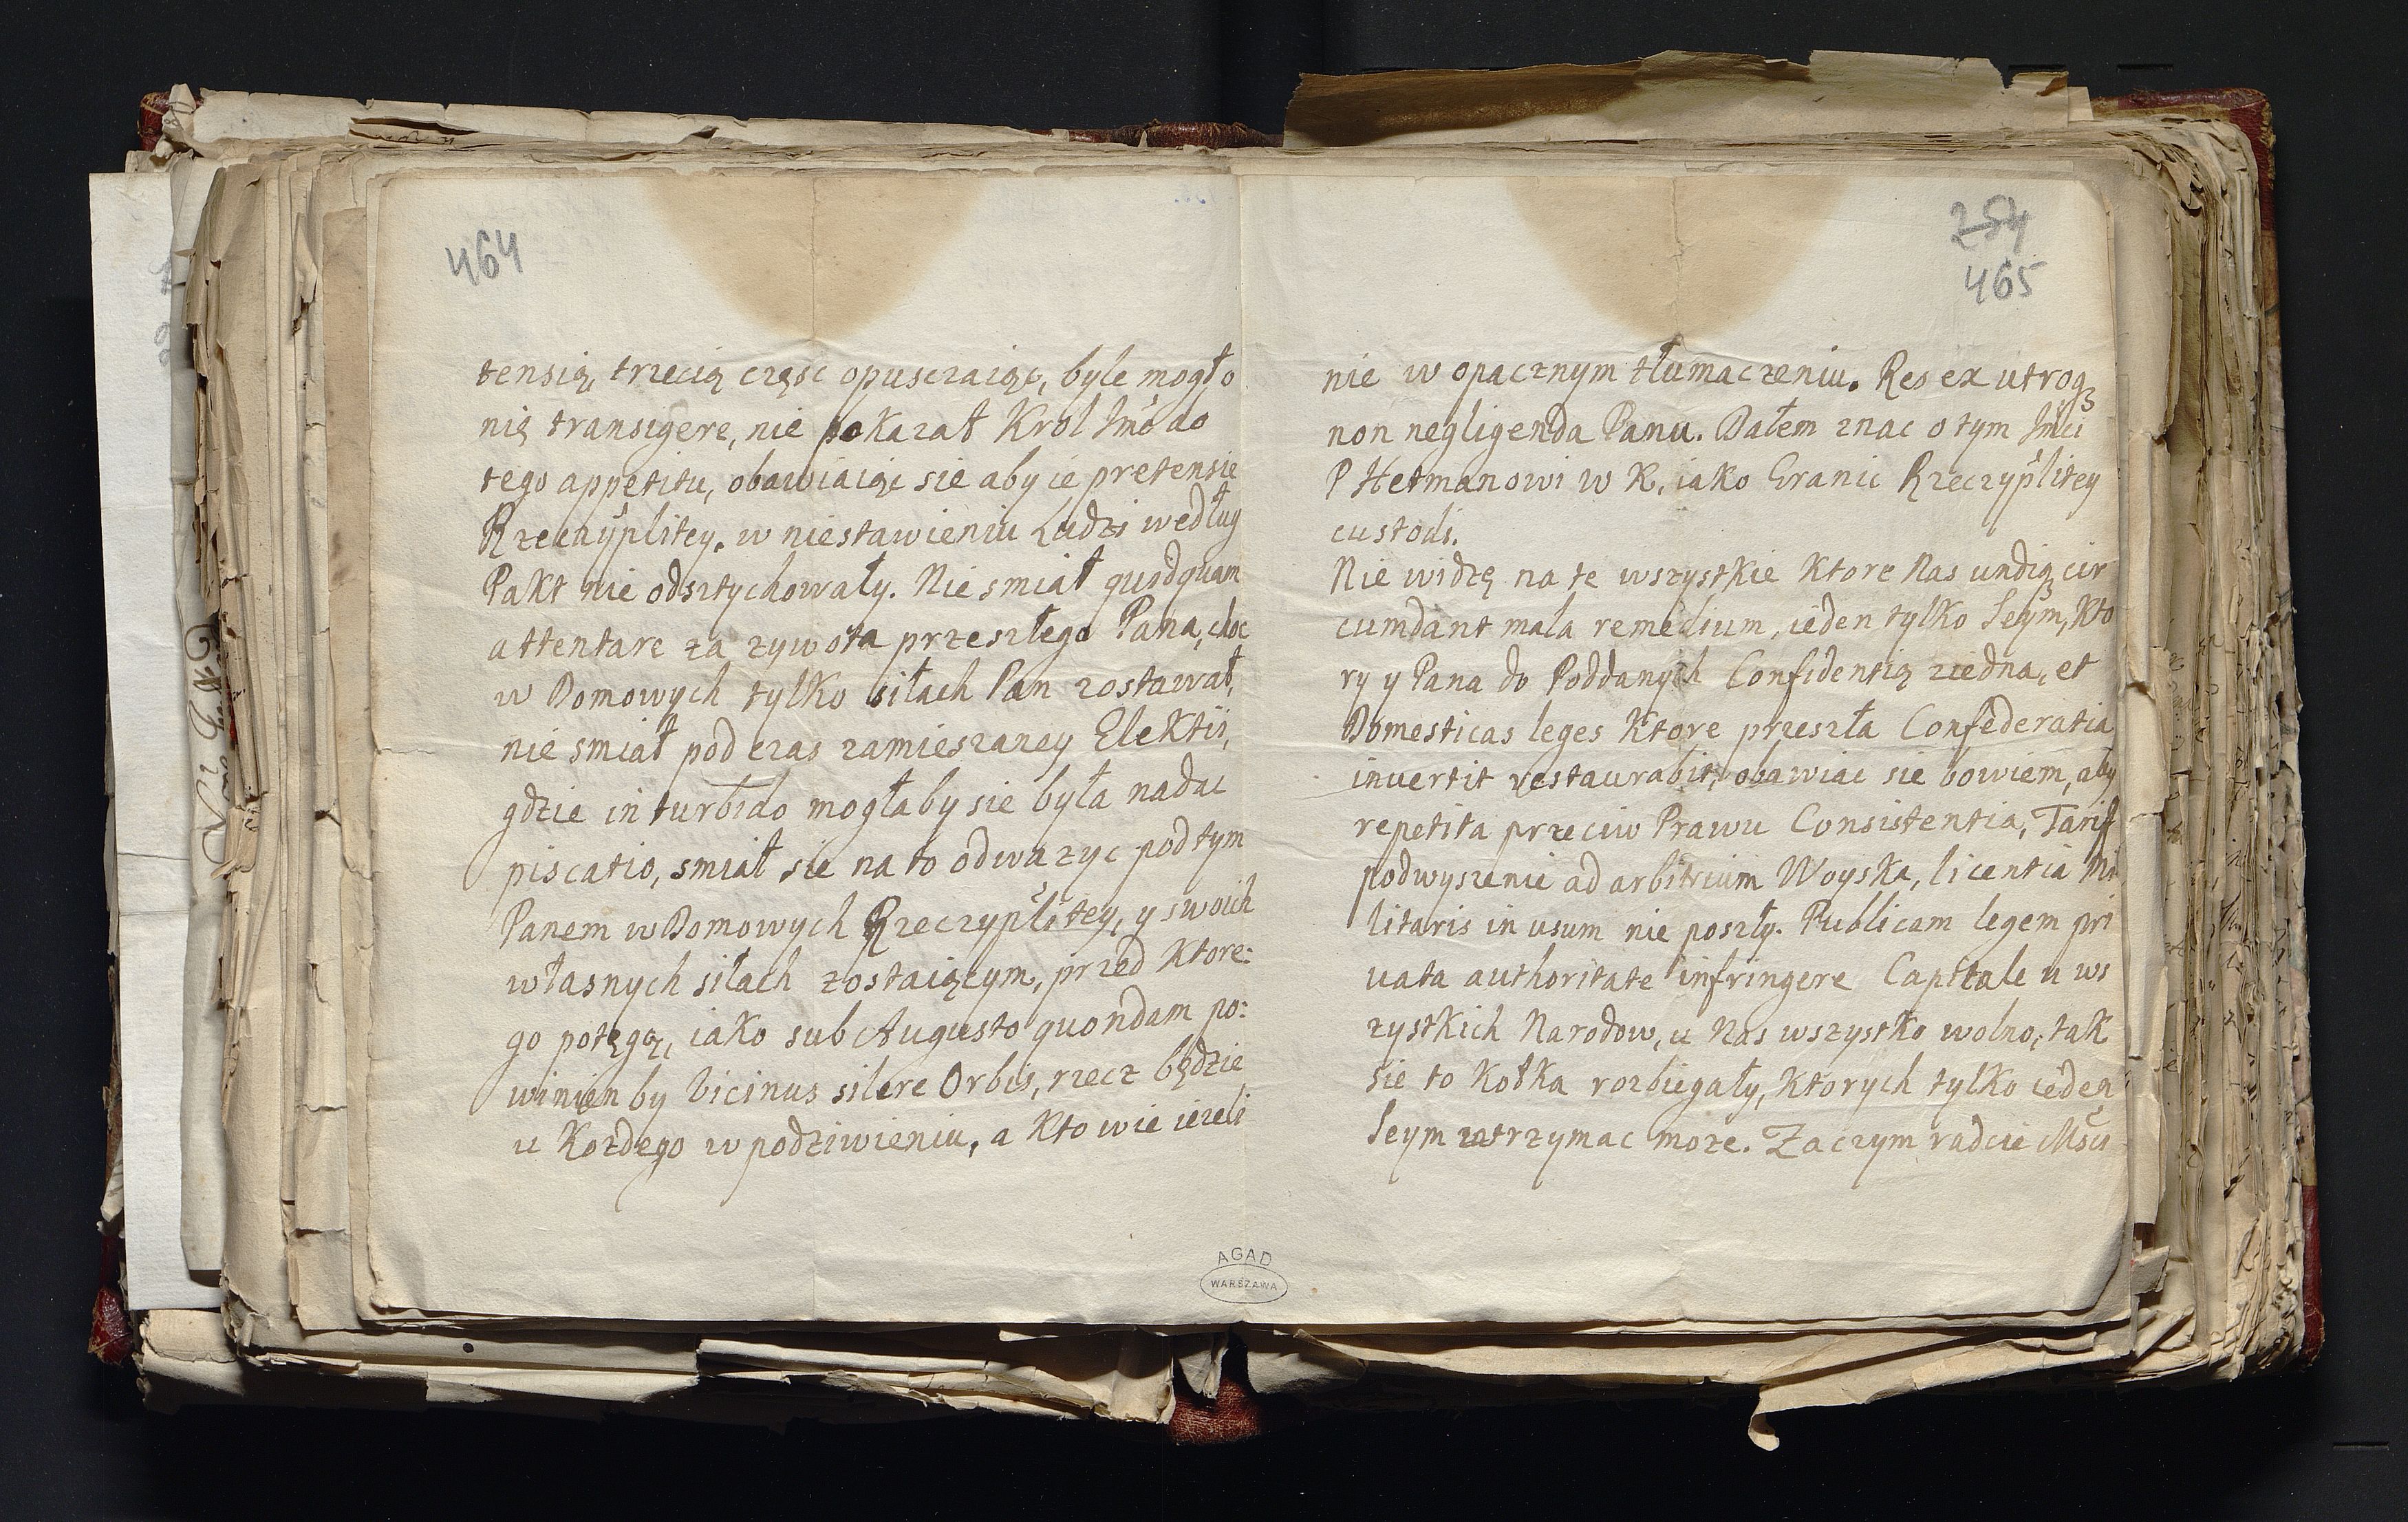 464
tensią, trzecią częsc opusczaiąc, byle mogło
nię transigere, nie pokazał Krol Jmo do
tego appetitu, obawiaiąc sie aby ie pretensie
Rzeczyplitey. w niestawieniu Ludzi według
Pakt nie odsztychowały. Nie smiał quidquam
attentare za zywota przeszłego Pana, choc
w Domowych tylko siłach Pan zostawał,
nie smiał pod czas zamieszaney Elektii,
gdzie in turbido mogłaby sie była nadac
piscatio, smiał sie na to odwazyc pod tym
Panem w Domowych Rzeczyplitey, y swoich
własnych siłach zostaiącym, przed ktore:
go potęgą, iako sub Augusto quondam po:
winien by vicinus silere Orbis, rzecz będzie
u Kozdego w podziwieniu, a Kto wie iezeli
254
465
nie w opacznym tłumaczeniu. Res ex utroq3
non negligenda Panu. Dałem znac o tym Jmci
P Hetmanowi w K. iako Granic Rzeczyplitey
custodi.
Nie widzę na te wszystkie Ktore Nas undiq3 cir
cumdant mala remedium, ieden tylko Seym, Kto
ry y Pana do Poddanych Confidentią ziedna, et
Domesticas leges Ktore przeszła Confederatia
invertit restaurabit, obawiac sie bowiem, aby
repetita przeciw Prawu Consistentia, Tariff
podwyszenie ad arbitrium Woyska, licentia Mi
litaris in usum nie poszły. Publicam legem pri
uata authoritate infringere Capitale u ws
zystkich Narodow, u Nas wszystko wolno, tak
sie to Kołka rozbiegały, Ktorych tylko ieden
Seym zatrzymac moze. Zaczym radcie Msci
AGAD
WARSZAWA